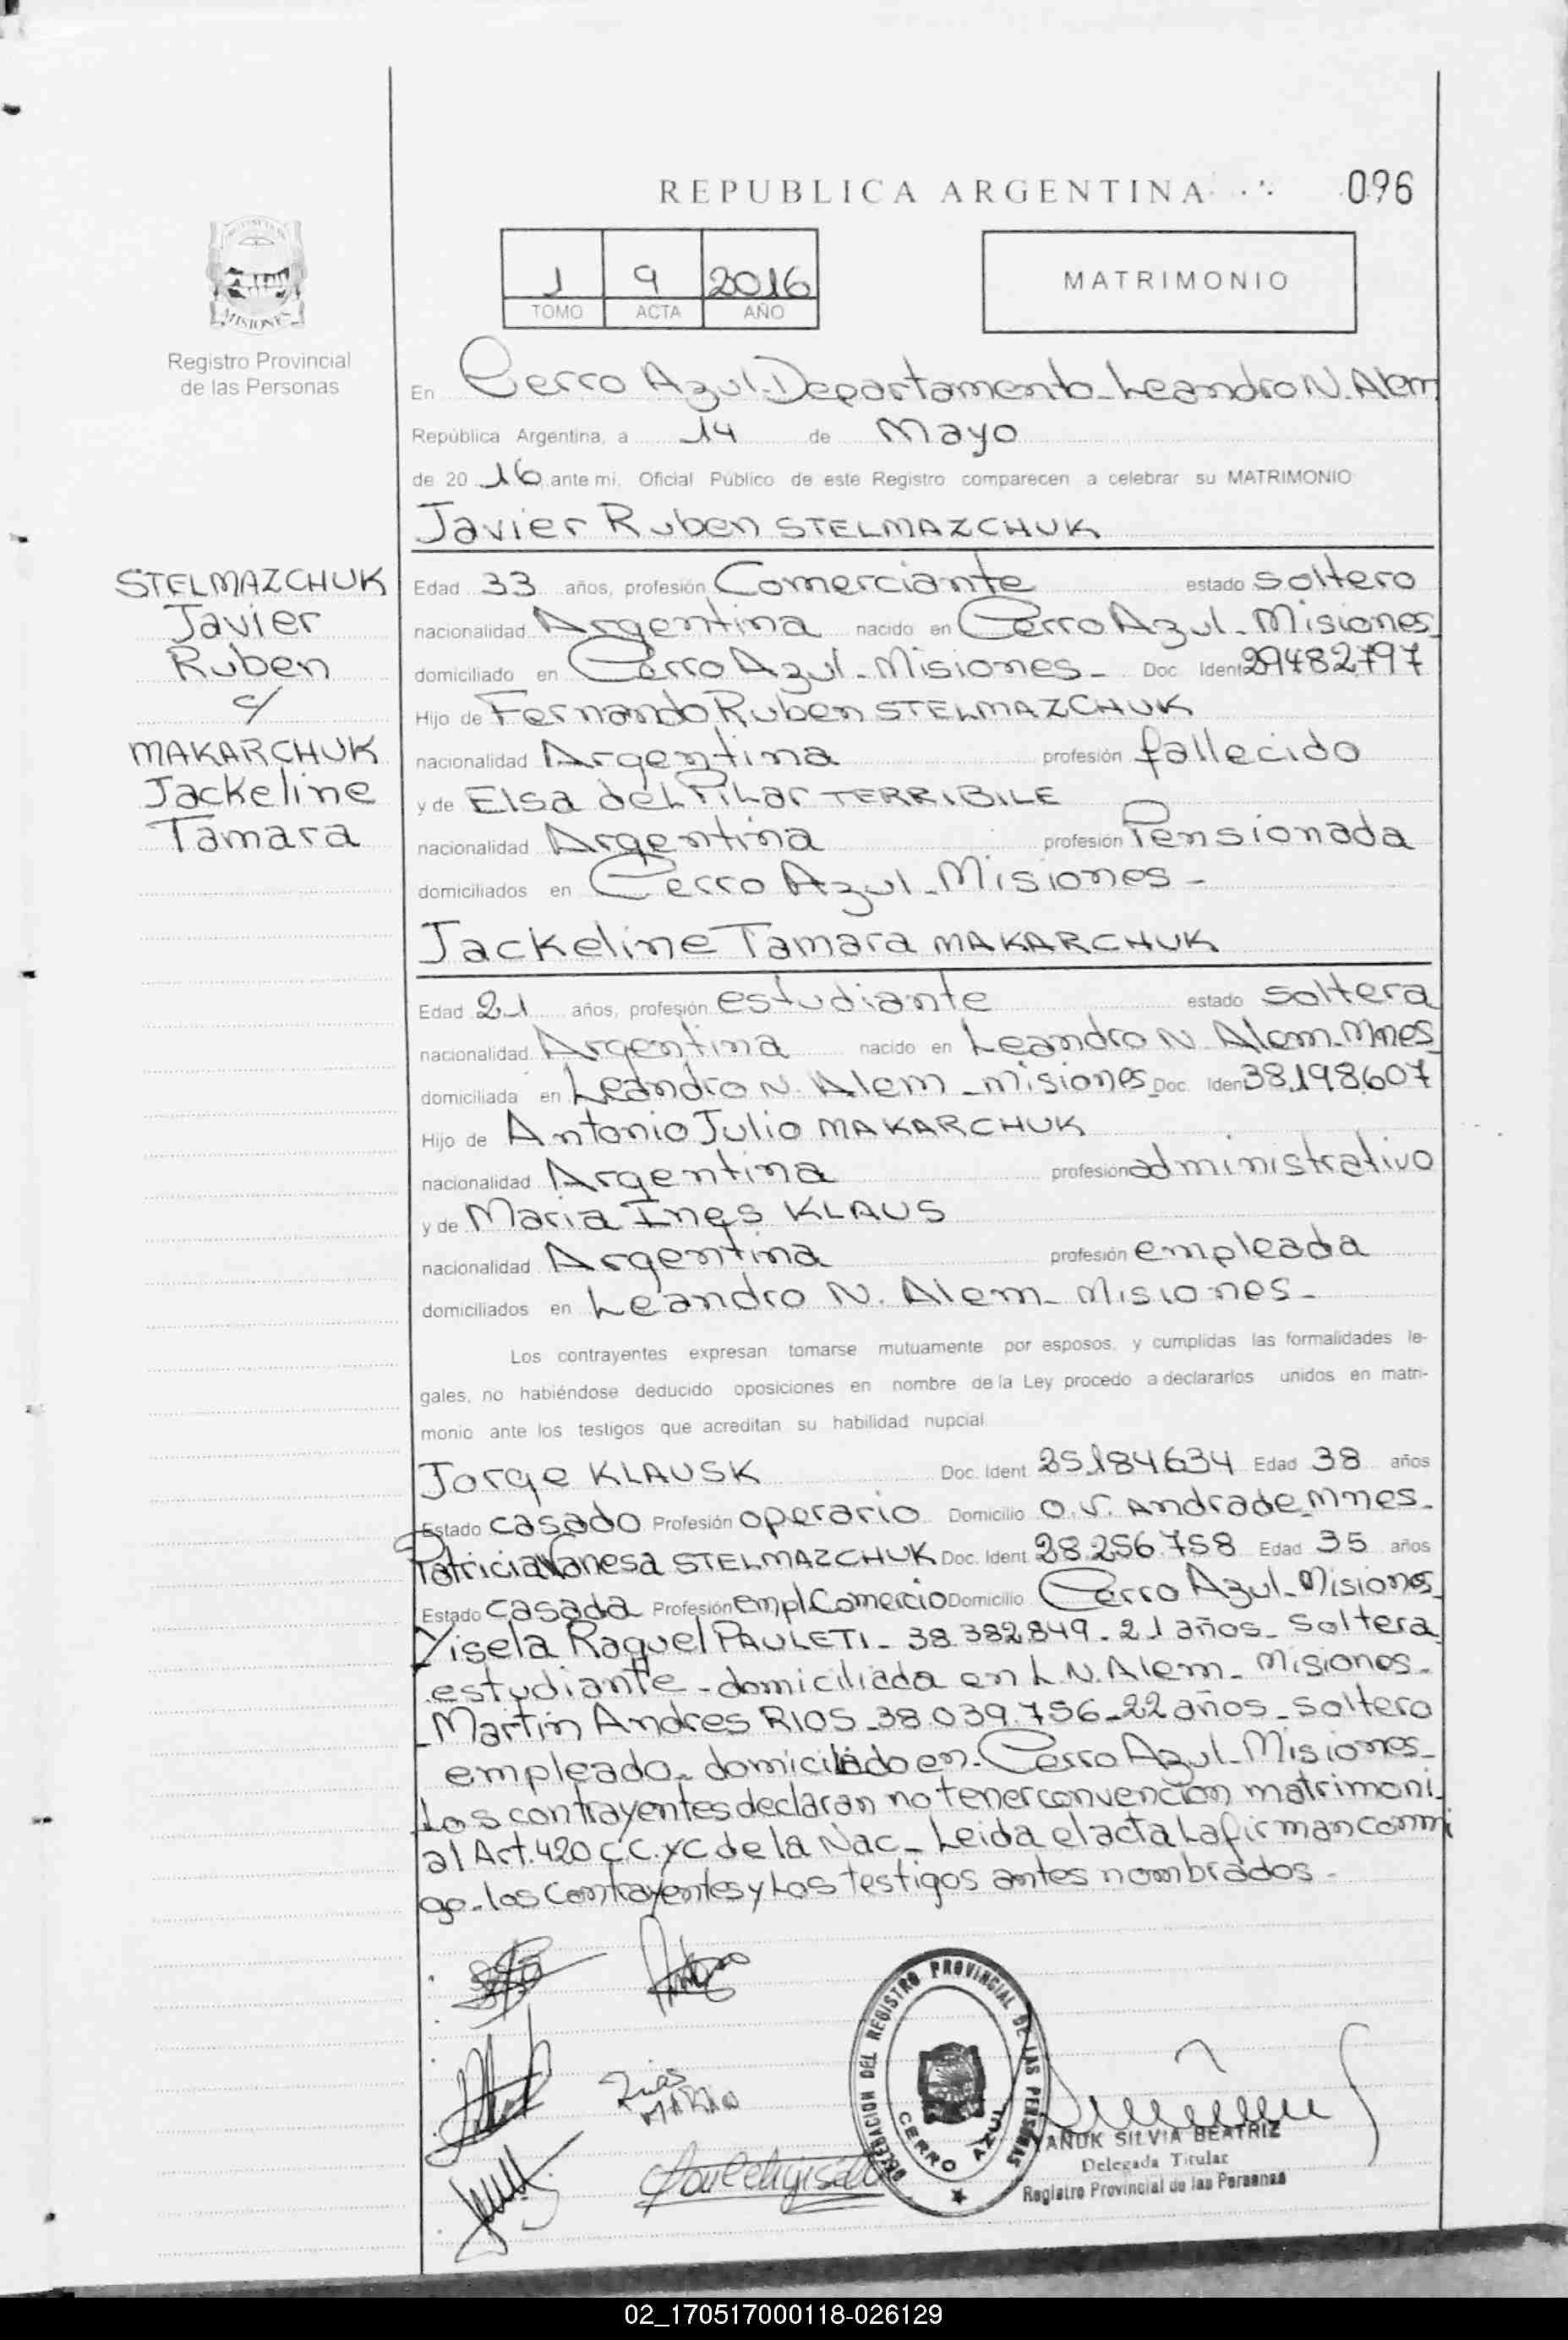 REPUBLICA ARGENTINA
096
MISIONES
Registro Provincial
de las Personas
1 9 2016
TOMO ACTA AÑO
MATRIMONIO
En Cerro Azul-Departamento-Leandro N. Alem
República Argentina, a 14 de Mayo
de 20 16 ante mi, Oficial Público de este Registro comparecen a celebrar su MATRIMONIO
Javier Ruben STELMAZCHUK
STELMAZCHUK
Javier
Ruben
c/
MAKARCHUK
Jackeline
Tamara
Edad 33 años, profesión Comerciante estado soltero
nacionalidad Argentina nacido en Cerro Azul-Misiones
domiciliado en Cerro Azul-Misiones- Doc. Ident 29482797
Hijo de Fernando Ruben STELMAZCHUK
nacionalidad Argentina profesión fallecido
y de Elsa del Pilar TERRIBILE
nacionalidad Argentina profesión Pensionada
domiciliados en Cerro Azul-Misiones-
Jackeline Tamara MAKARCHUK
Edad 21 años, profesión estudiante estado soltera
nacionalidad Argentina nacido en Leandro N. Alem-Mnes
domiciliada en Leandro N. Alem-misiones Doc. Ident 38.198.607
Hijo de Antonio Julio MAKARCHUK
nacionalidad Argentina profesión administrativo
y de Maria Ines KLAUS
nacionalidad Argentina profesión empleada
domiciliados en Leandro N. Alem-Misiones-
Los contrayentes expresan tomarse mutuamente por esposos, y cumplidas las formalidades le-
gales, no habiéndose deducido oposiciones en nombre de la Ley procedo a declararlos unidos en matri-
monio ante los testigos que acreditan su habilidad nupcial
Jorge KLAUSK Doc. Ident 25.184.634 Edad 38 años
Estado casado Profesión operario Domicilio O.V. Andrade-Mnes-
Patricia Vanesa STELMAZCHUK Doc. Ident 28.256.758 Edad 35 años
Estado casada Profesión empl.Comercio Domicilio Cerro Azul-Misiones
Yisela Raquel PAULETI- 38.382.849-21 años-soltera
estudiante-domiciliada en L.N. Alem-Misiones-
-Martin Andres RIOS-38.039.756-22 años-soltero
empleado-domiciliado en-Cerro Azul-Misiones-
Los contrayentes declaran no tener convención matrimoni
al Art.420 C.C.yC de la Nac- Leida el acta La firman conmi
go-los contrayentes y Los testigos antes nombrados-
DELEGACION DEL REGISTRO PROVINCIAL DE LAS PERSONAS
CERRO AZUL
YANUK SILVIA BEATRIZ
Delegada Titular
Registro Provincial de las Personas
02_170517000118-026129